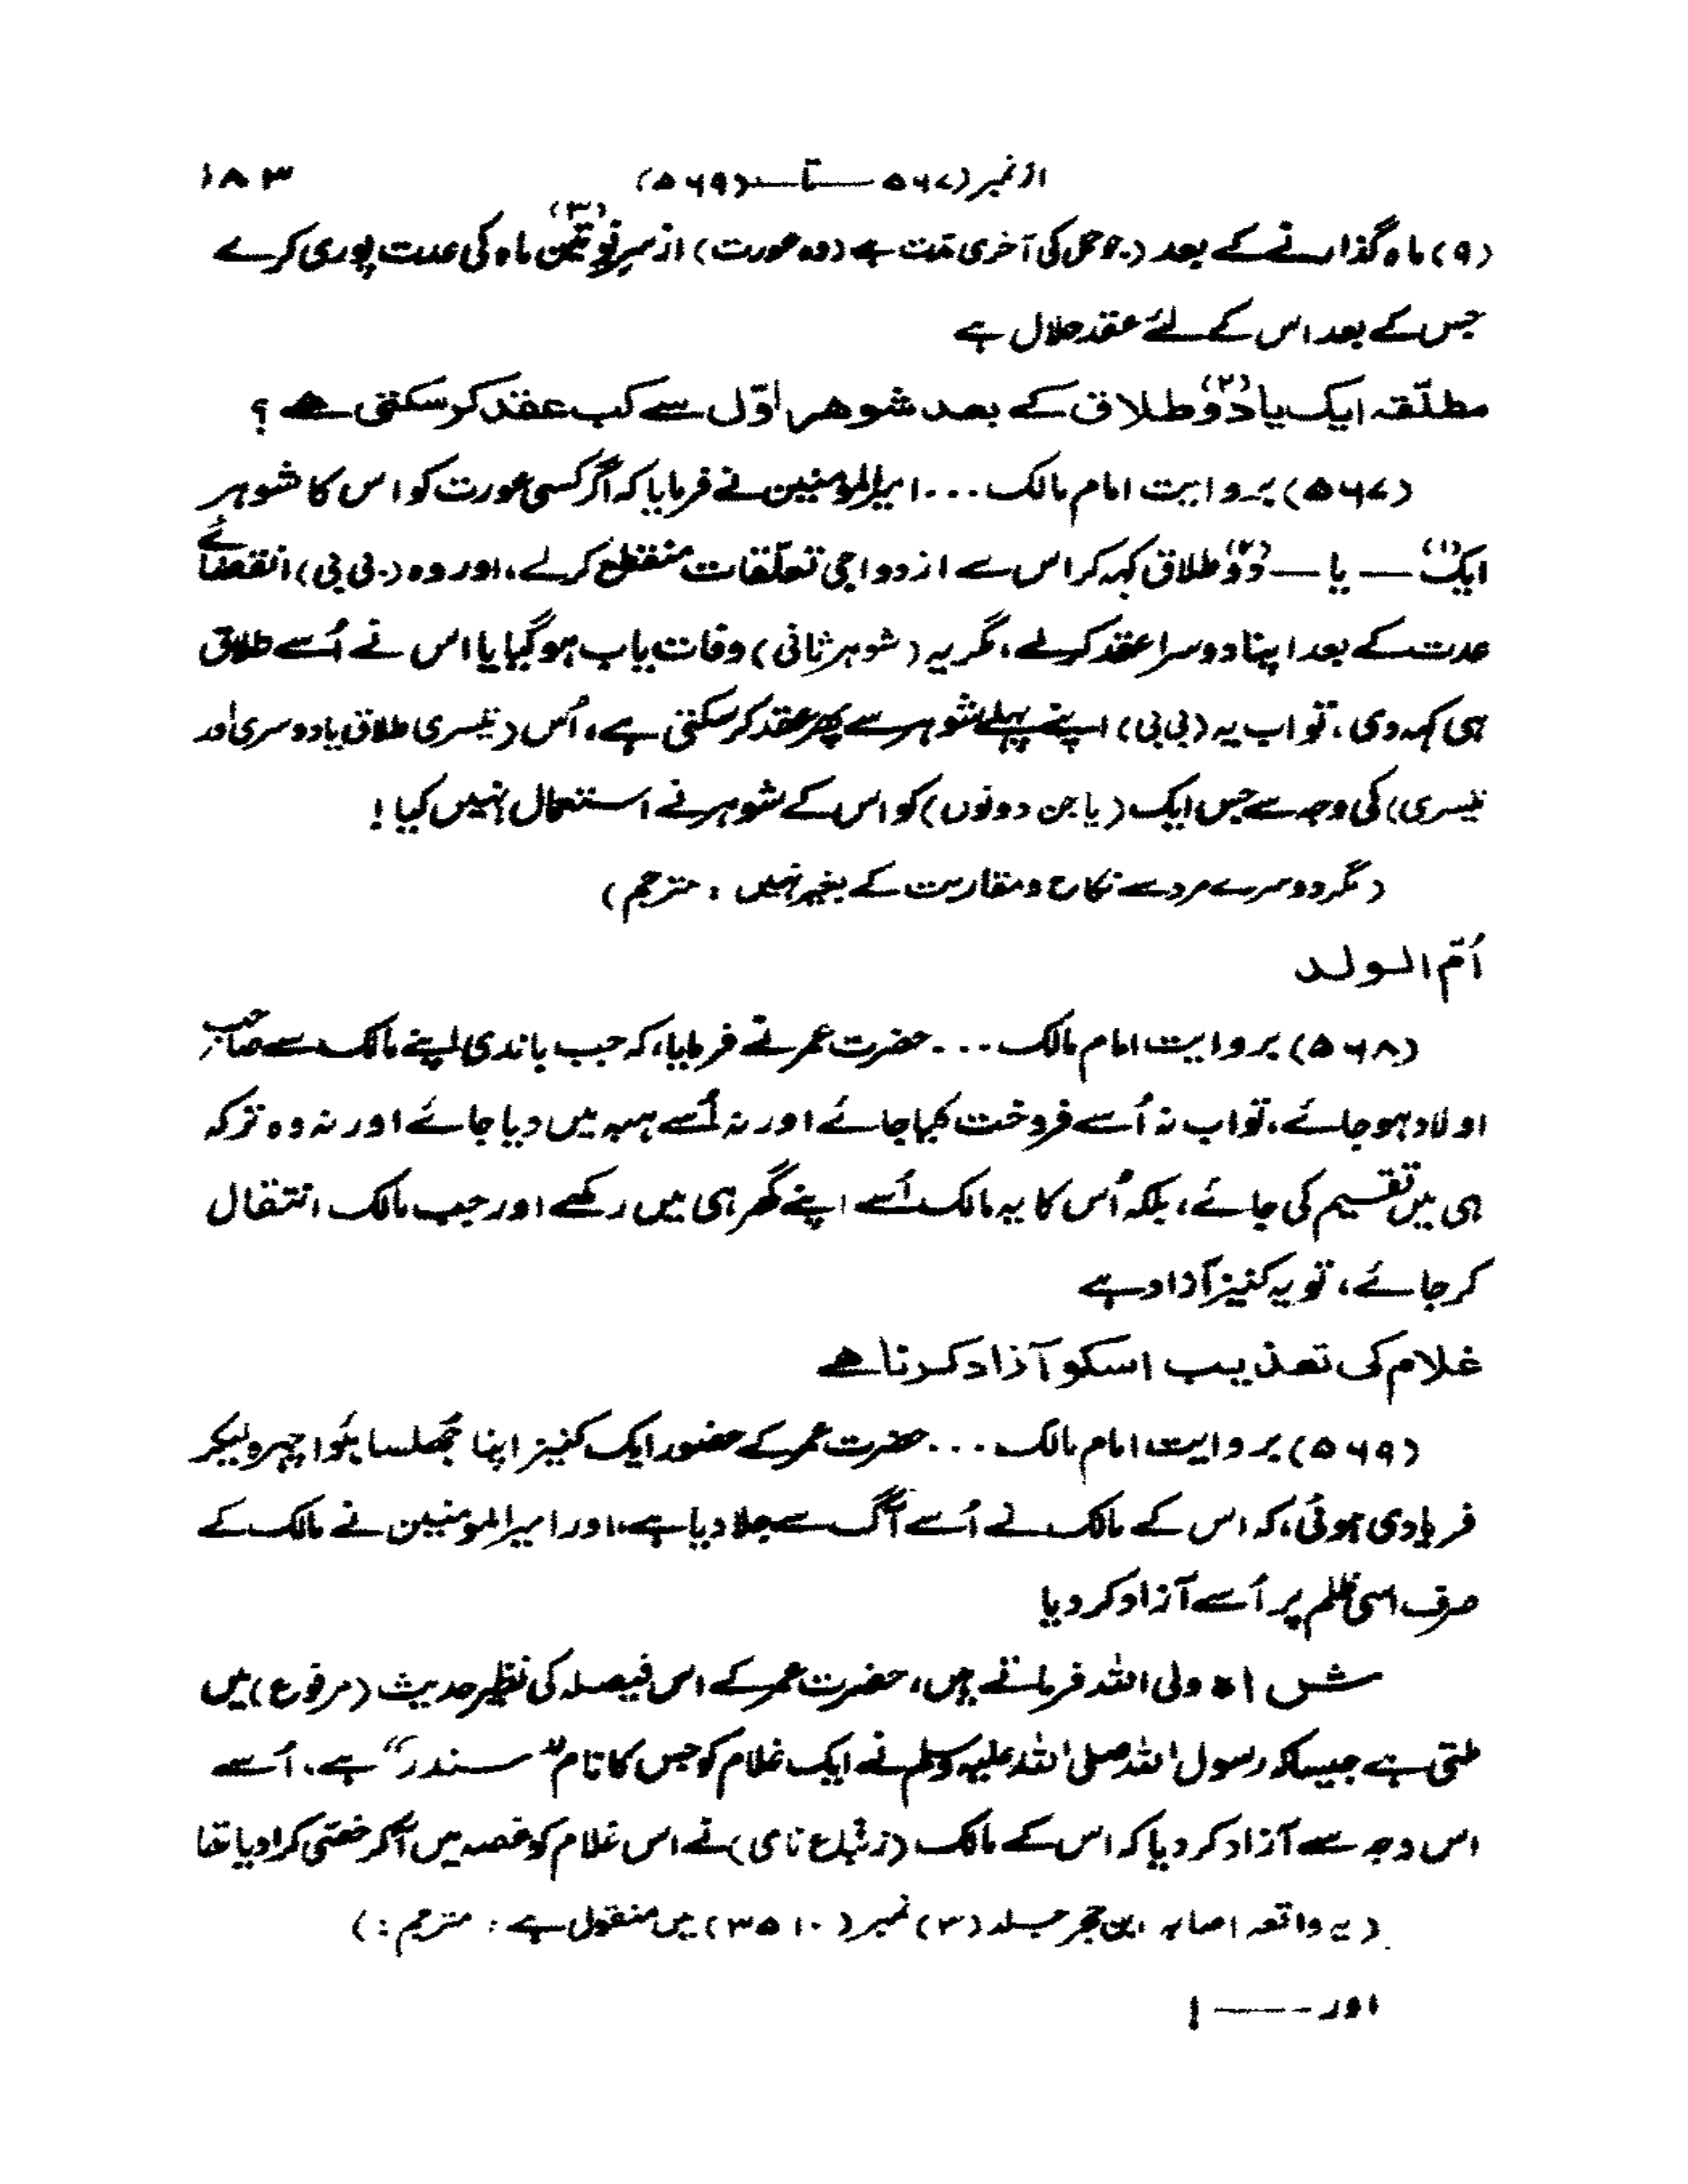 از نمبر (۵۶۷ — تا — (۵۶۹) ۱۸۳
(۹) ماہ گذارنے کے بعد (جو حمل کی آخری مدت ہے (وہ عورت) از سرِ نو تین (۳) ماہ کی عدت پوری کرے
جس کے بعد اس کے لئے عقد حلال ہے
مطلّقہ ایک یا دوّ (۲) طلاق کے بعد شوھر اوّل سے کب عقد کر سکتی ھے ؟
(۵۶۷) بروایت امام مالک ... امیرالمؤمنین نے فرمایا کہ اگر کسی عورت کو اس کا شوہر
ایک (۱) — یا — دوّ (۲) طلاق کہہ کر اس سے ازدواجی تعلّقات منقطع کرلے، اور وہ (بی بی) انقضائے
عدت کے بعد اپنا دوسرا عقد کرلے، مگر یہ (شوہر ثانی) وفات یاب ہو گیا یا اس نے اُسے طلاق
ہی کہہ دی، تو اب یہ (بی بی) اپنے پہلے شوہر سے پھر عقد کر سکتی ہے، اُس (تیسری طلاق یا دوسری اور
تیسری) کی وجہ سے جس ایک (یا جن دونوں) کو اس کے شوہر نے استعمال نہیں کیا !
(مگر دوسرے مرد سے نکاح و مقاربت کے بغیر نہیں : مترجم)
اُمّ الولد
(۵۶۸) بروایت امام مالک ... حضرت عمر نے فرمایا، کہ جب باندی اپنے مالک سے صاحب
اولاد ہو جائے، تو اب نہ اُسے فروخت کیا جائے اور نہ اُسے ہبہ میں دیا جائے اور نہ وہ ترکہ
ہی میں تقسیم کی جائے، بلکہ اُس کا یہ مالک اُسے اپنے گھر ہی میں رکھے اور جب مالک انتقال
کر جائے، تو یہ کنیز آزاد ہے
غلام کی تعذیب اسکو آزاد کرنا ھے
(۵۶۹) بروایت امام مالک ... حضرت عمر کے حضور ایک کنیز اپنا جُھلسا ہُوا چہرہ لیکر
فریادی ہوئی، کہ اس کے مالک نے اُسے آگ سے جلا دیا ہے، اور امیرالمومنین نے مالک کے
صرف اسی ظلم پر اُسے آزاد کر دیا
شاہ ولی اللہ فرماتے ہیں، حضرت عمر کے اس فیصلہ کی نظیر حدیث (مرفوع) میں
ملتی ہے جیساکہ رسول اللہ صلی اللہ علیہ وسلم نے ایک غلام کو جس کا نام "سندر" ہے، اُسے
اس وجہ سے آزاد کر دیا کہ اس کے مالک (زنباع نامی) نے اس غلام کو غصہ میں آکر خصّی کرا دیا تھا
(یہ واقعہ اصابہ ابن حجر جلد (۳) نمبر (۳۵۱۰) میں منقول ہے : مترجم :)
اور —— !